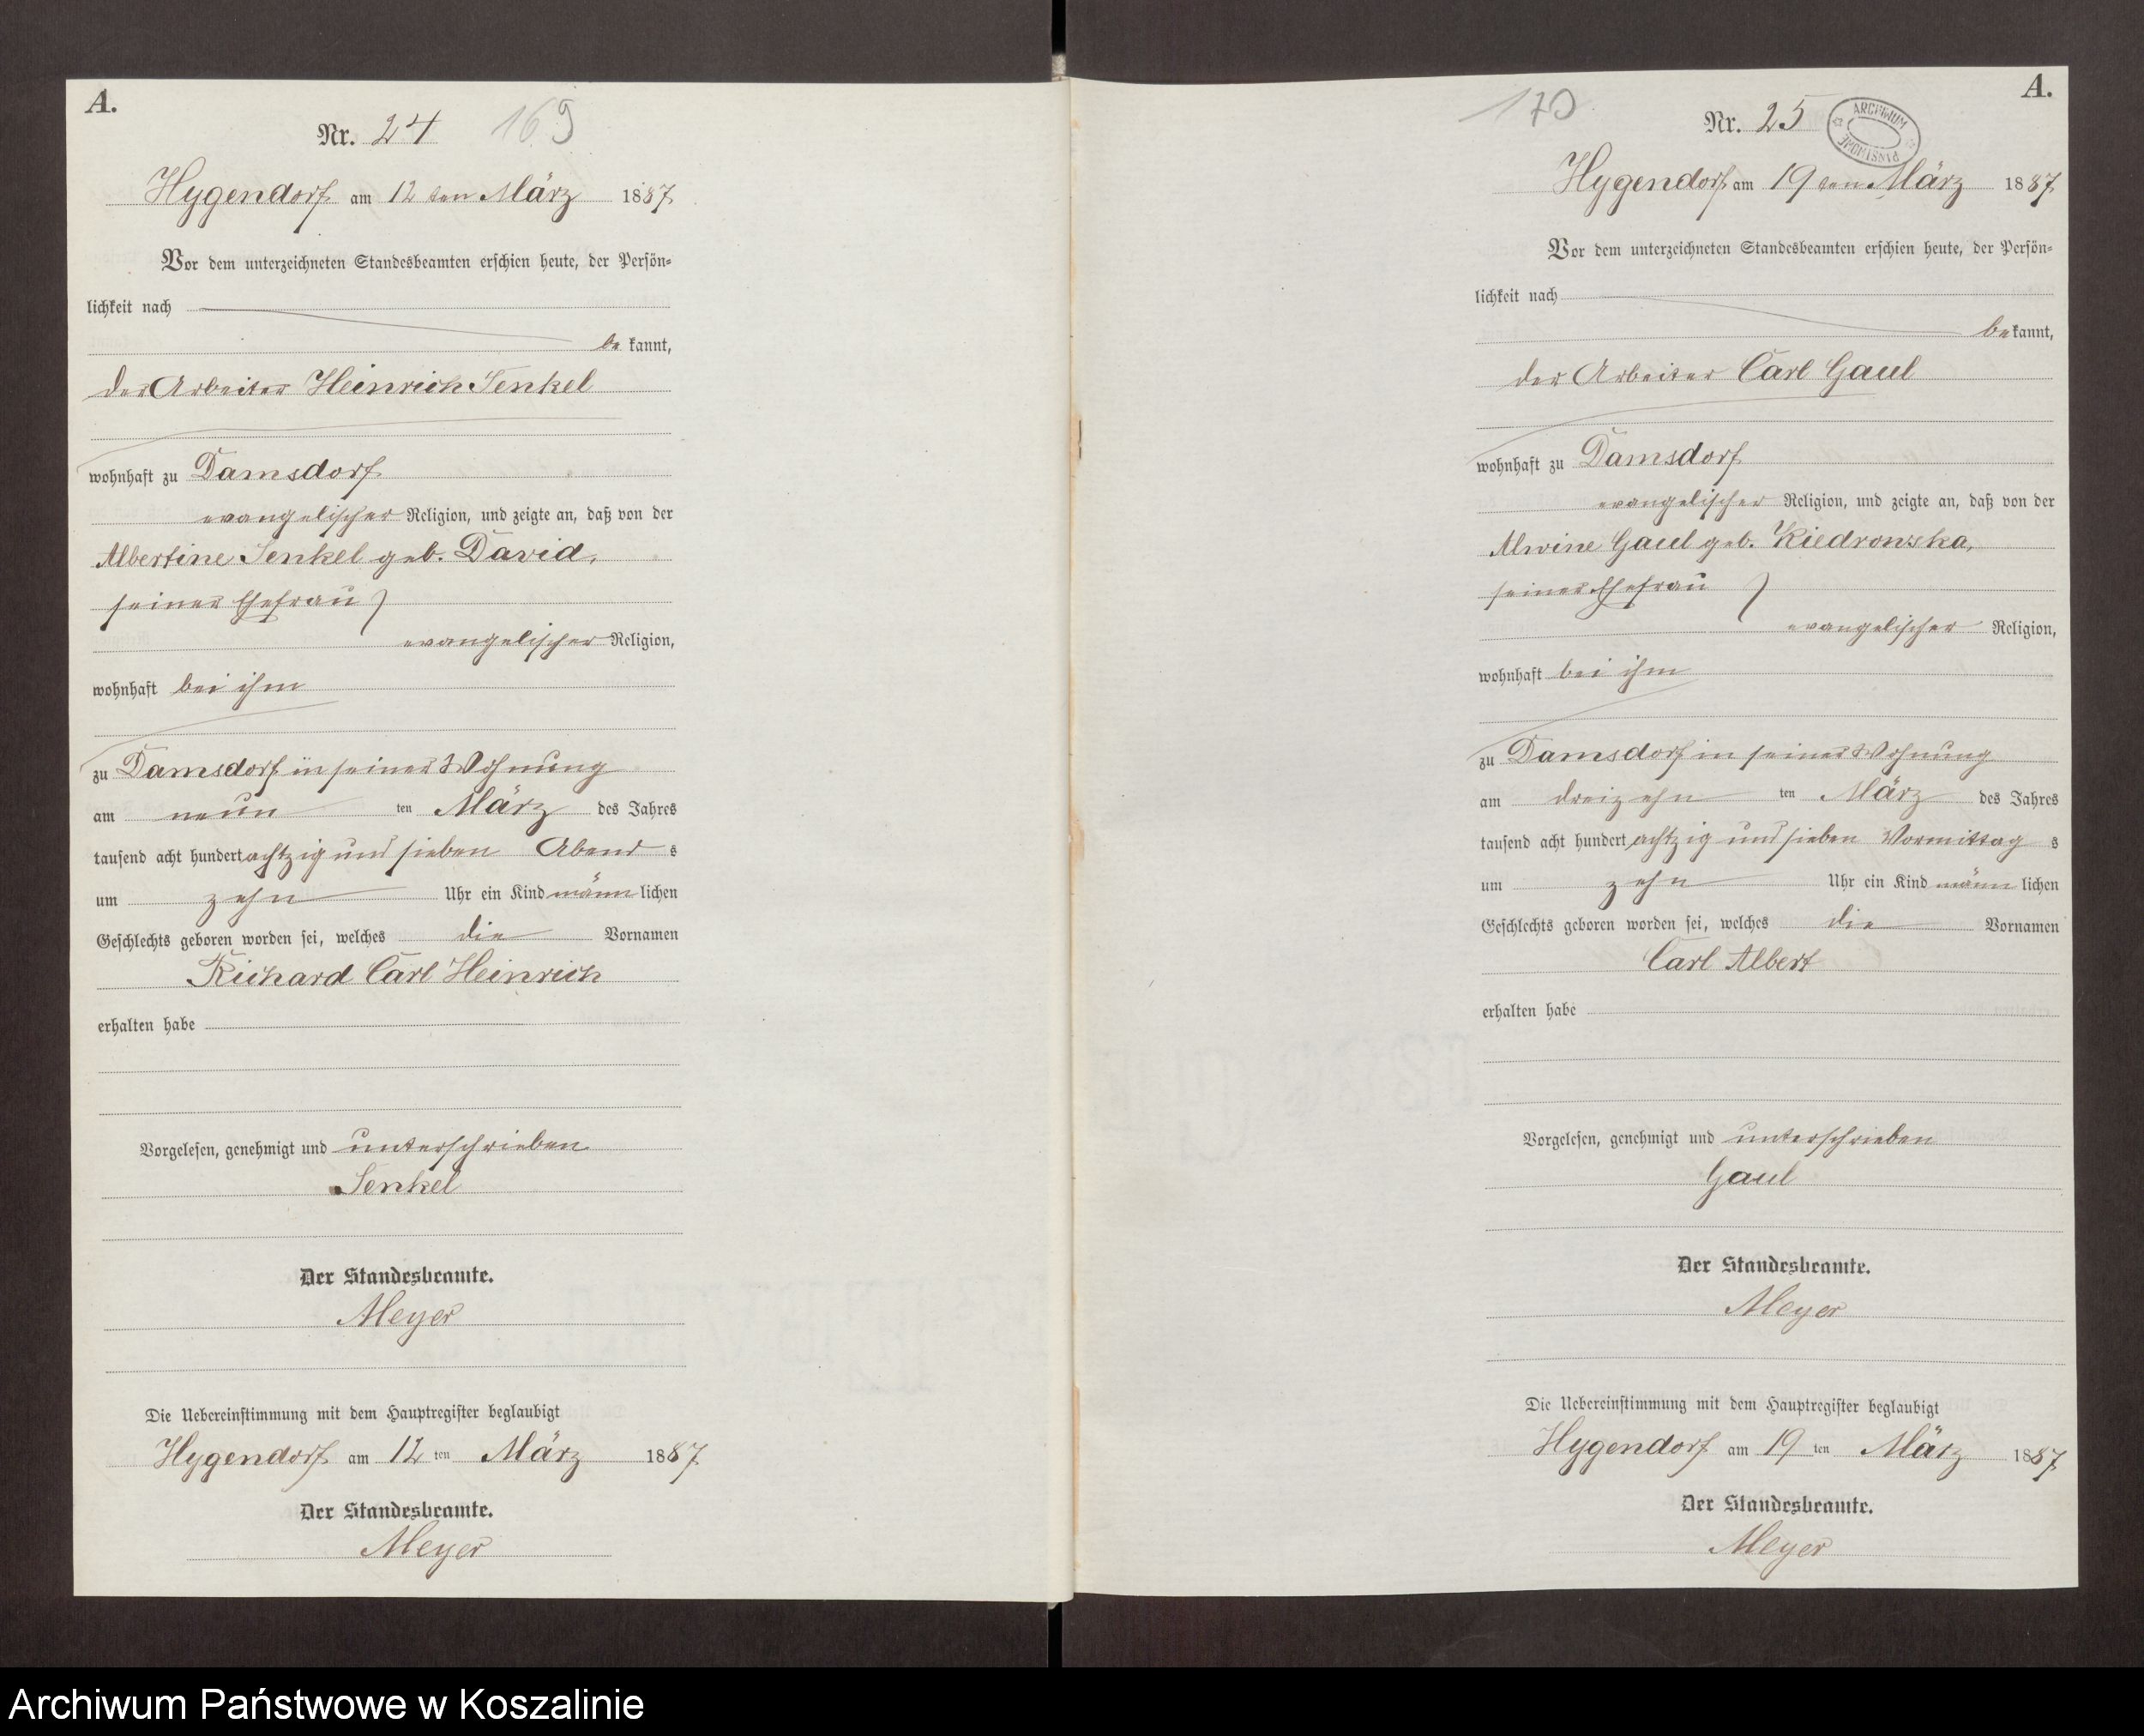 A.
Nr. 24 169
Hygendorf am 12 ten März 1887
Vor dem unterzeichneten Standesbeamten erschien heute, der Persön-
lichkeit nach
be kannt,
der Arbeiter Heinrich Senkel
wohnhaft zu Damsdorf
evangelischer Religion, und zeigte an, daß von der
Albertine Senkel geb. David,
seiner Ehefrau
evangelischer Religion,
wohnhaft bei ihm
zu Damsdorf in seiner Wohnung
am neun ten März des Jahres
tausend acht hundert achtzig und sieben Abend s
um zehn Uhr ein Kind männ lichen
Geschlechts geboren worden sei, welches die Vornamen
Richard Carl Heinrich
erhalten habe
Vorgelesen, genehmigt und unterschrieben
Senkel
Der Standesbeamte.
Meyer
Die Uebereinstimmung mit dem Hauptregister beglaubigt
Hygendorf am 12 ten März 1887
Der Standesbeamte.
Meyer
A.
170 Nr. 25
ARCHIWUM PAŃSTWOWE
Hygendorf am 19 ten März 1887
Vor dem unterzeichneten Standesbeamten erschien heute, der Persön-
lichkeit nach
bekannt,
der Arbeiter Carl Gaul
wohnhaft zu Damsdorf
evangelischer Religion, und zeigte an, daß von der
Alwine Gaul geb. Kiedrowska,
seiner Ehefrau
evangelischer Religion,
wohnhaft bei ihm
zu Damsdorf in seiner Wohnung
am dreizehn ten März des Jahres
tausend acht hundert achtzig und sieben Vormittag s
um zehn Uhr ein Kind männ lichen
Geschlechts geboren worden sei, welches die Vornamen
Carl Albert
erhalten habe
Vorgelesen, genehmigt und unterschrieben
Gaul
Der Standesbeamte.
Meyer
Die Uebereinstimmung mit dem Hauptregister beglaubigt
Hygendorf am 19 ten März 1887
Der Standesbeamte.
Meyer
Archiwum Państwowe w Koszalinie